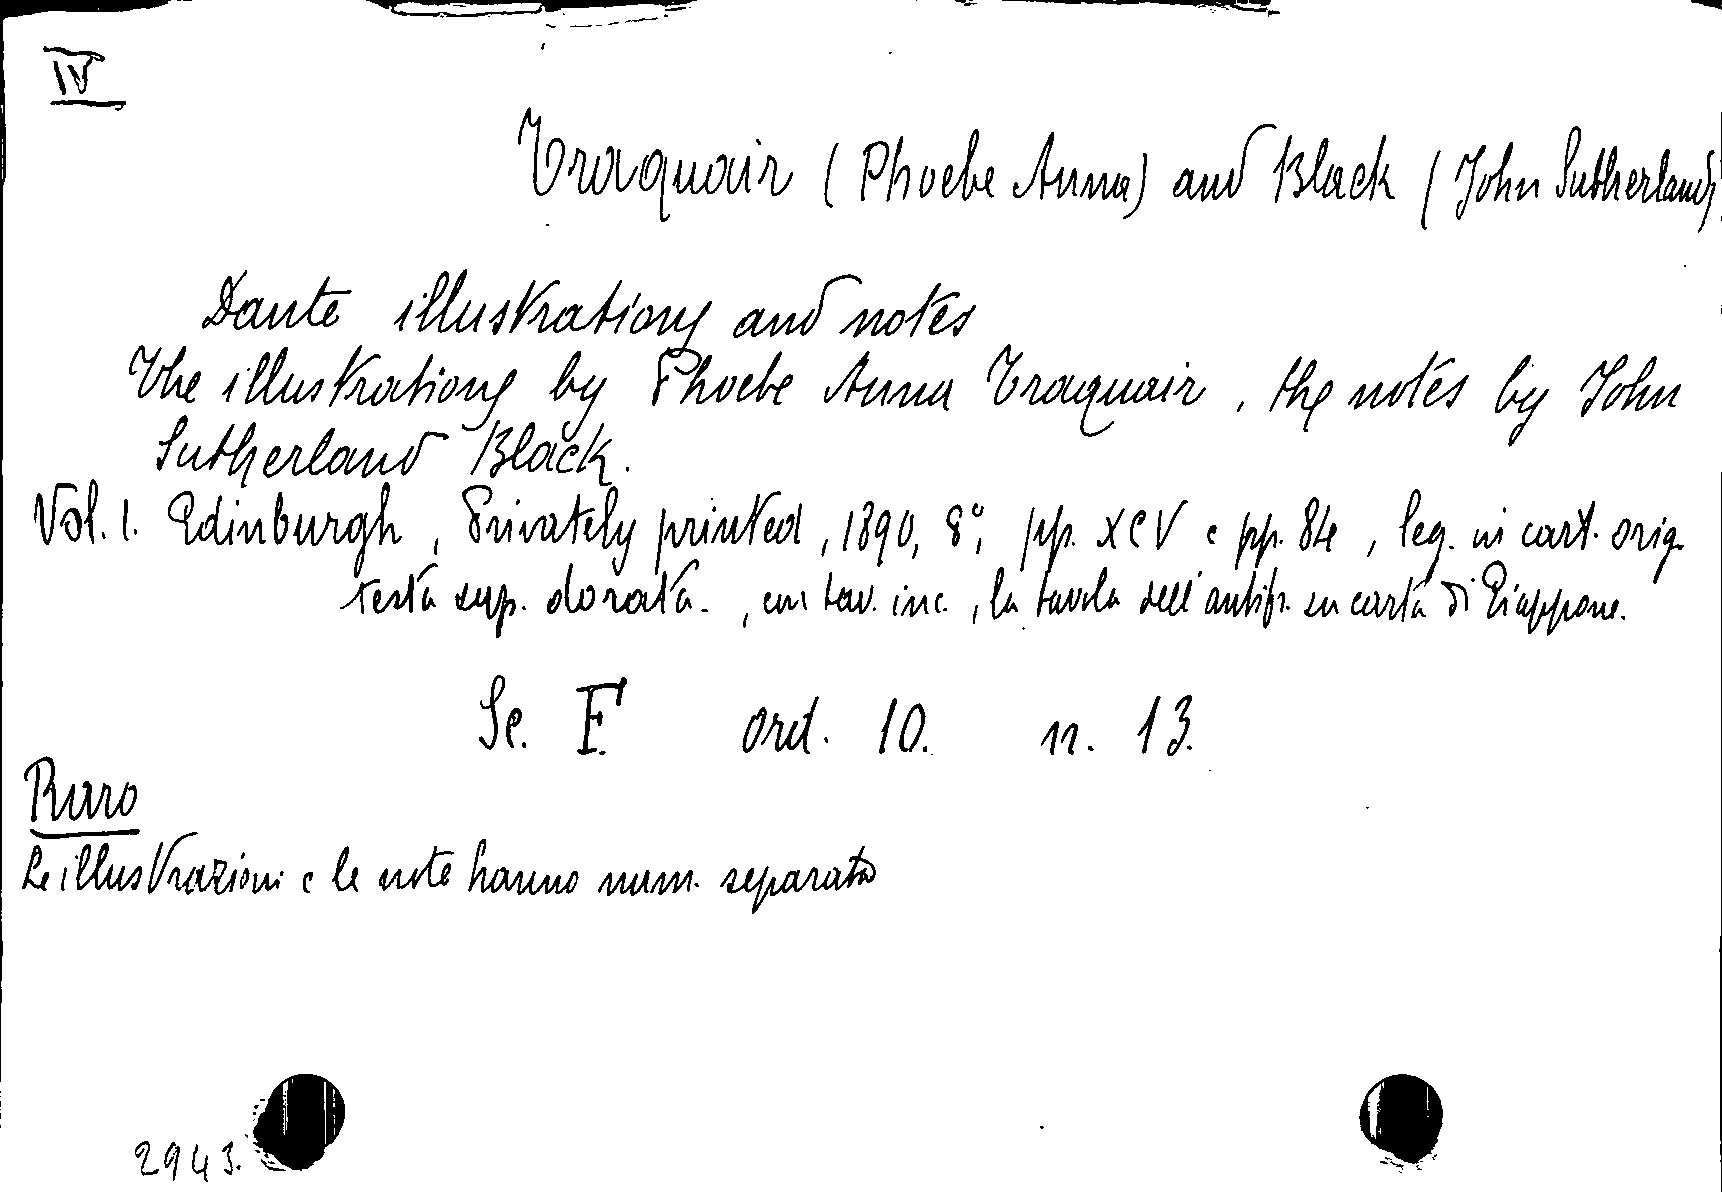 IV
Traquair (Phoebe Anna) and Black (John Sutherland)
Dante illustrations and notes
The illustrations by Phoebe Anna Traquair, the notes by John
Sutherland Black.
Vol. 1. Edinburgh, Privately printed, 1890, 8°, pp. XCV e pp. 84, leg. in cart. orig.
testa sup. dorata., con tav. inc., la tavola dell'antip. su carta di Giappone.
Se. F. ord. 10. n. 13.
Raro
Le illustrazioni e le note hanno num. separata
2943.